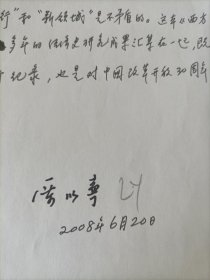 行"和"新领域"是不矛盾的。这本《西方
多年的经济史研究成果汇集在一起,既
个纪录,也是对中国改革开放30周年
厉以宁
2008年6月20日